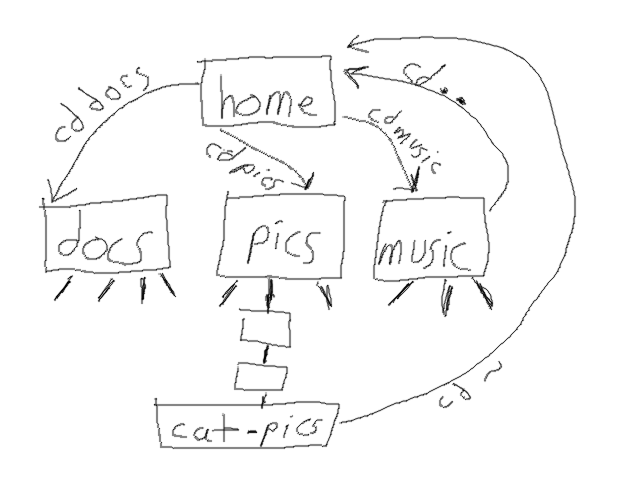 home
cd docs
cd pics
cd music
cd ..
docs
pics
music
cat-pics
cd ~